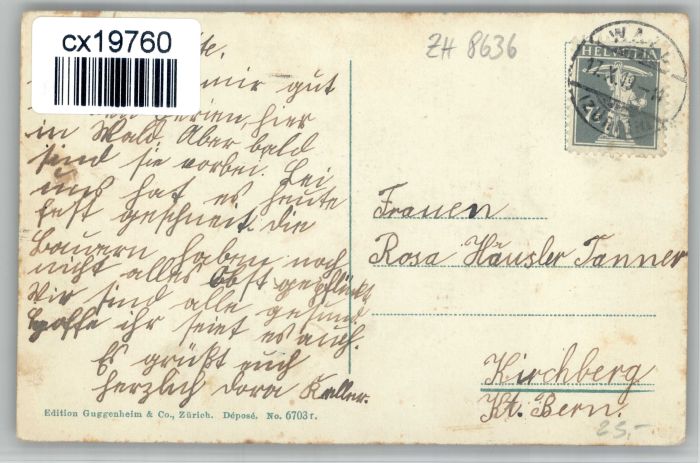 cx19760
ZH 8636
mir gut
Ferien, hier
in Wald Aber bald
sind sie vorbei. Bei
uns hat es heute
fest geschneit die
Bauern haben noch
nicht alles Obst gepflückt
Wir sind alle gesund
hoffe ihr seiet es auch.
Es grüßt euch
herzlich Dora Keller.
HELVETIA
WALD
Frauen
Rosa Häusler Tanner
Kirchberg
Kt. Bern.
25.-
Edition Guggenheim & Co., Zürich. Déposé. No. 6703 r.